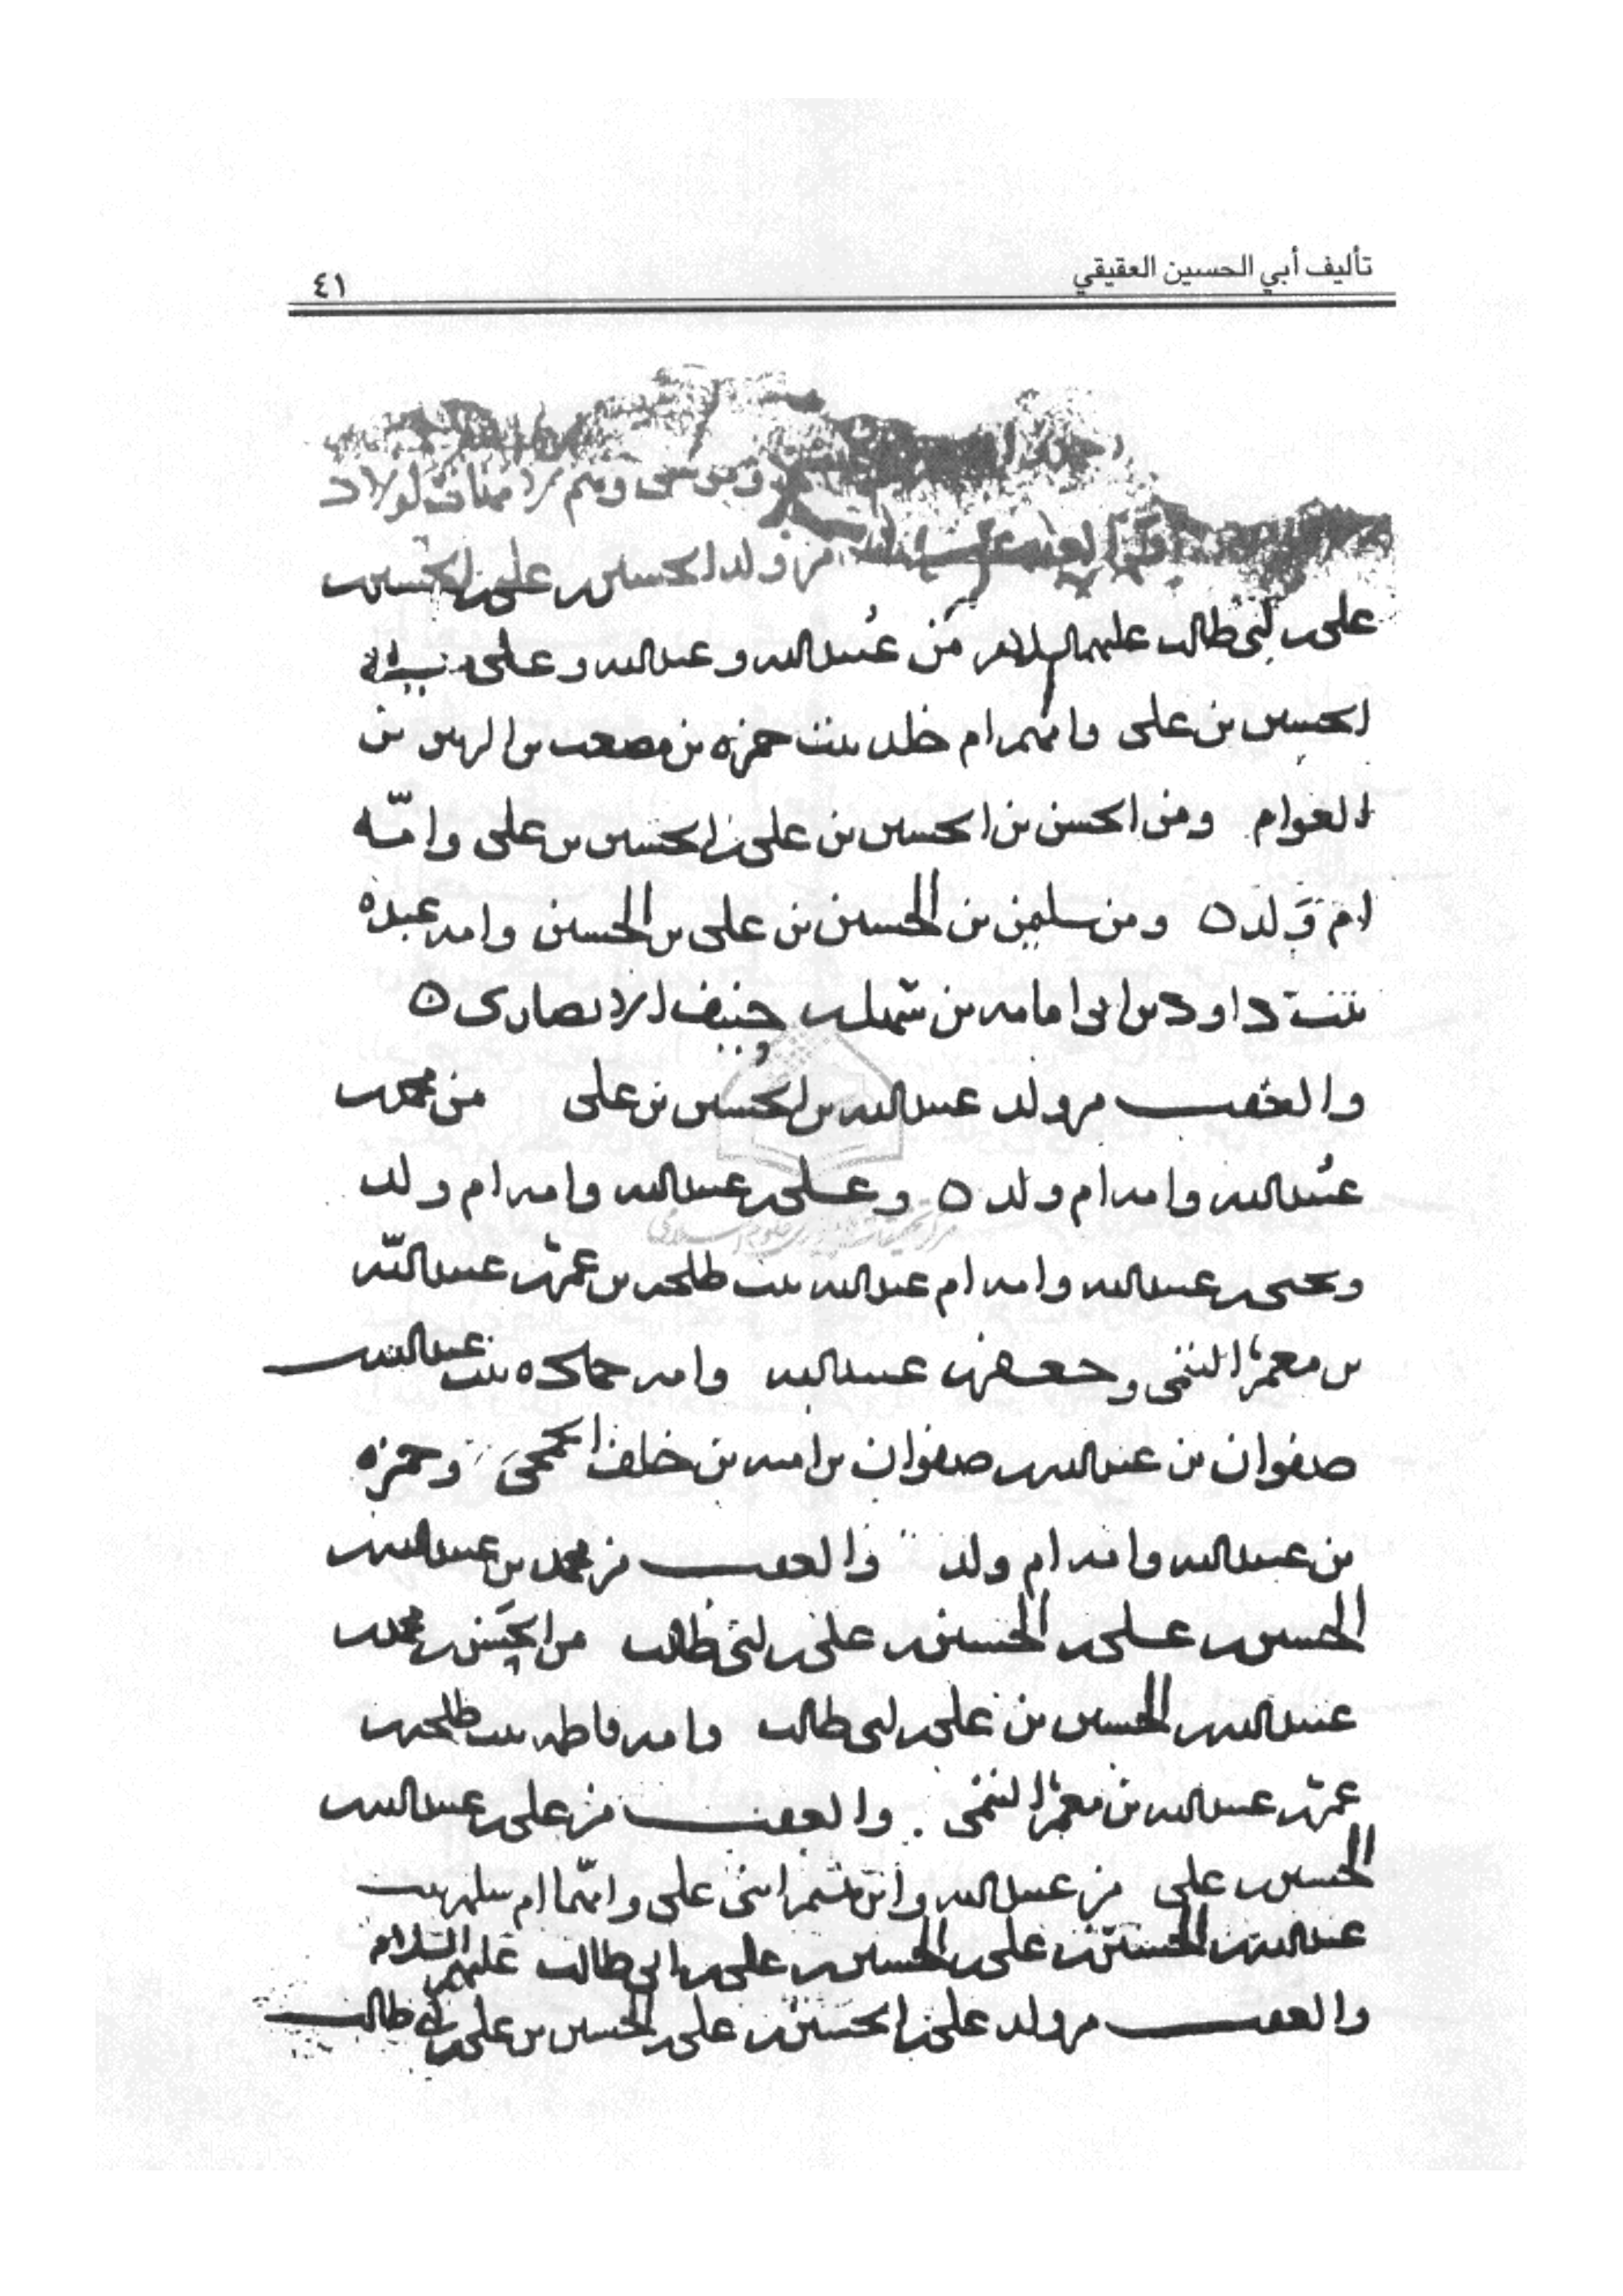 تأليف أبي الحسين العقيقي
٤١
وموسى ومنهم لاولاد
من ولد الحسين بن علي بن الحسين
علي بن ابى طالب عليهم السلام من عبيدالله وعبدالله وعلى
الحسين بن على وامهم ام خلد بنت حمزه بن مصعب بن الزبير بن
العوام ومن الحسن بن الحسين بن على بن الحسين بن على وامّه
ام وَلد ٥ ومن سليمن بن الحسين بن على بن الحسين وامه عبده
بنت داود بن ابى امامه بن سهل بن حنيف الانصارى ٥
والعقب من ولد عبيدالله بن الحسين بن على من محمد بن
عبُيدالله وامه ام ولد ٥ وعلى بن عبيدالله وامه ام ولد
ويحيى بن عبيدالله وامه ام عبدالله بنت طلحه بن عمر بن عبيداللّه
بن معمر التيمى وجعفر بن عبيدالله وامه حماده بنت عبدالله بن
صفوان بن عبدالله بن صفوان بن اميه بن خلف الجمحى وحمزه
بن عبيدالله وامه ام ولد والعقب من محمد بن عبيدالله بن
الحسين بن على بن الحسين بن على بن ابى طالب من الحسن بن محمد بن
عبيدالله بن الحسين بن على بن ابى طالب وامه فاطمه بنت طلحه بن
عمر بن عبيدالله بن معمر التيمى . والعقب من على بن عبيدالله بن
الحسين بن على من عبيدالله وابراهيم ابنى على وامّهما ام سلمه بنت
عبدالله بن الحسين بن على بن الحسين بن على بن ابى طالب عليهم السلام
والعقب من ولد على بن الحسين بن على بن الحسين بن على بن ابى طالب